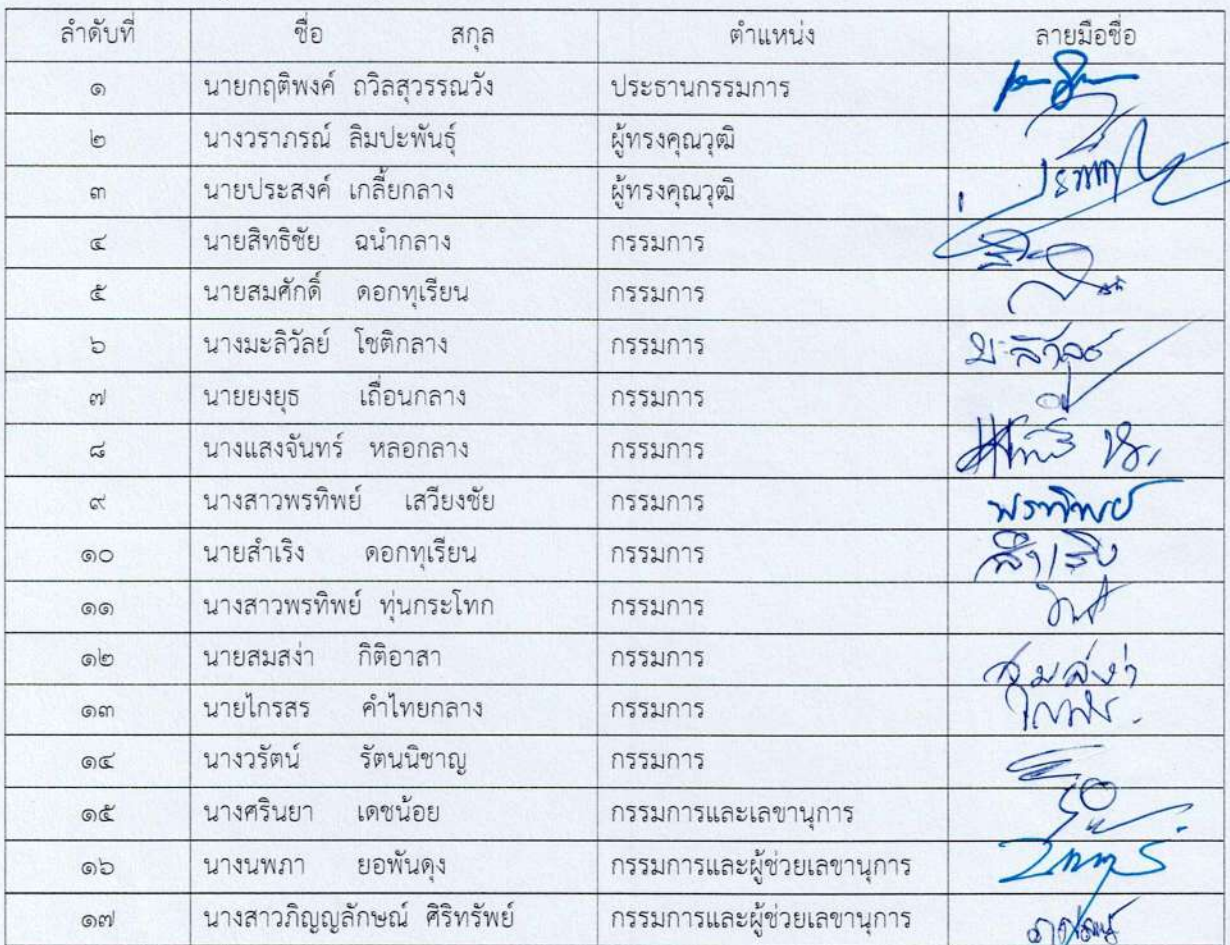 ลำดับที่ ชื่อ สกุล ตำแหน่ง ลายมือชื่อ
๑ นายกฤติพงศ์ ถวิลสุวรรณวัง ประธานกรรมการ
๒ นางวราภรณ์ ลิมปะพันธุ์ ผู้ทรงคุณวุฒิ
๓ นายประสงค์ เกลี้ยกลาง ผู้ทรงคุณวุฒิ
๔ นายสิทธิชัย ฉนำกลาง กรรมการ
๕ นายสมศักดิ์ ดอกทุเรียน กรรมการ
๖ นางมะลิวัลย์ โชติกลาง กรรมการ มะลิวัลย์
๗ นายยงยุธ เถื่อนกลาง กรรมการ
๘ นางแสงจันทร์ หลอกลาง กรรมการ
๙ นางสาวพรทิพย์ เสวียงชัย กรรมการ พรทิพย์
๑๐ นายสำเริง ดอกทุเรียน กรรมการ สำเริง
๑๑ นางสาวพรทิพย์ ทุ่นกระโทก กรรมการ
๑๒ นายสมสง่า กิติอาสา กรรมการ สมสง่า
๑๓ นายไกรสร คำไทยกลาง กรรมการ
๑๔ นางวรัตน์ รัตนนิชาญ กรรมการ
๑๕ นางศรินยา เดชน้อย กรรมการและเลขานุการ
๑๖ นางนพภา ยอพันดุง กรรมการและผู้ช่วยเลขานุการ
๑๗ นางสาวภิญญลักษณ์ ศิริทรัพย์ กรรมการและผู้ช่วยเลขานุการ